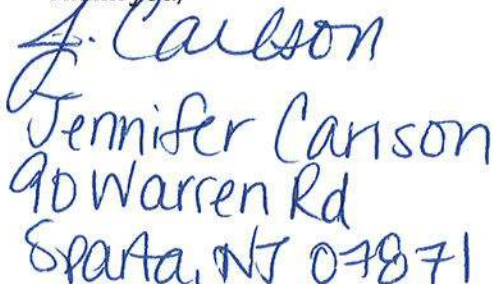 J. Carlson
Jennifer Carlson
90 Warren Rd
Sparta, NJ 07871